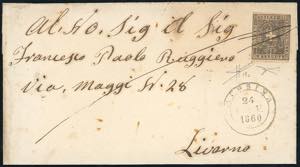 Al. Ho. Sig il Sig
Francesco Paolo Ruggiero
Via, Maggi N. 28
Livorno
24
1860